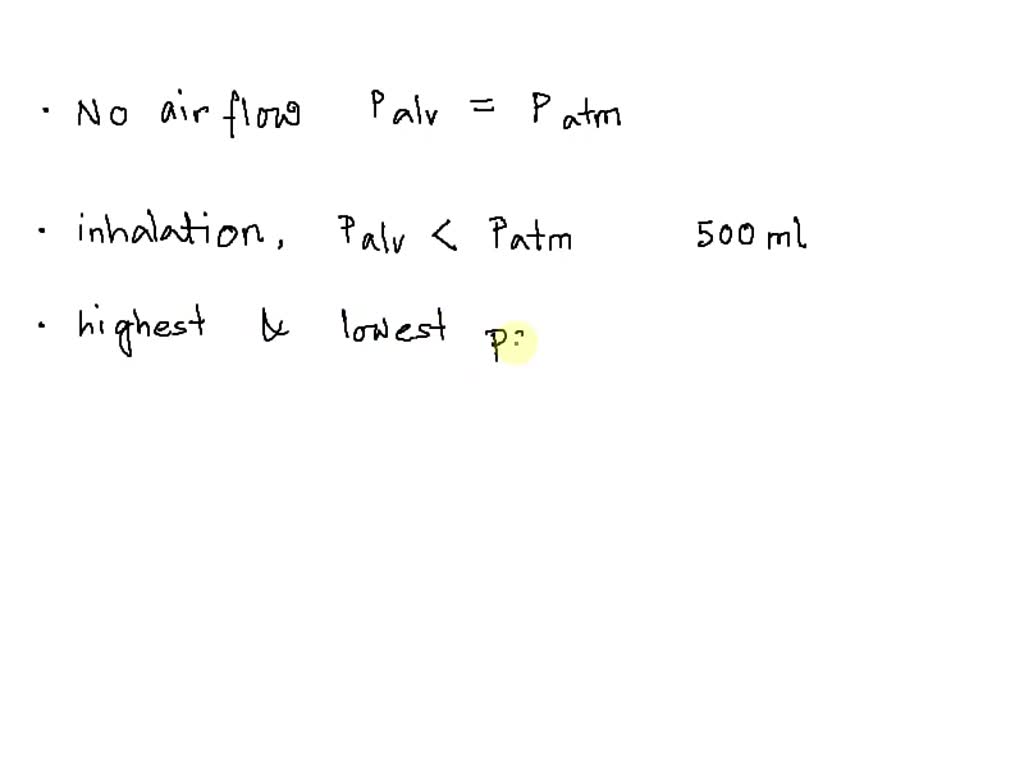 · No air flow Palv = Patm
· inhalation, Palv < Patm 500 ml
· highest & lowest